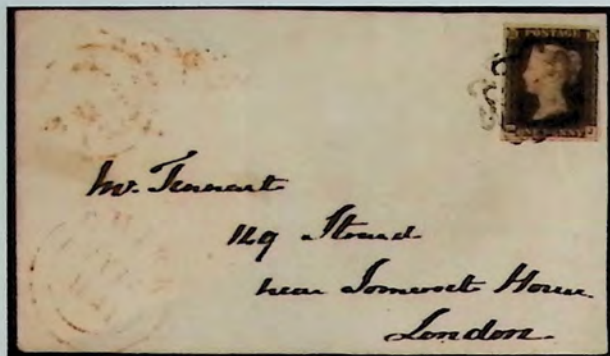 POSTAGE
ONE PENNY
Mr. Tennant
149 Strand
near Somerset House
London.